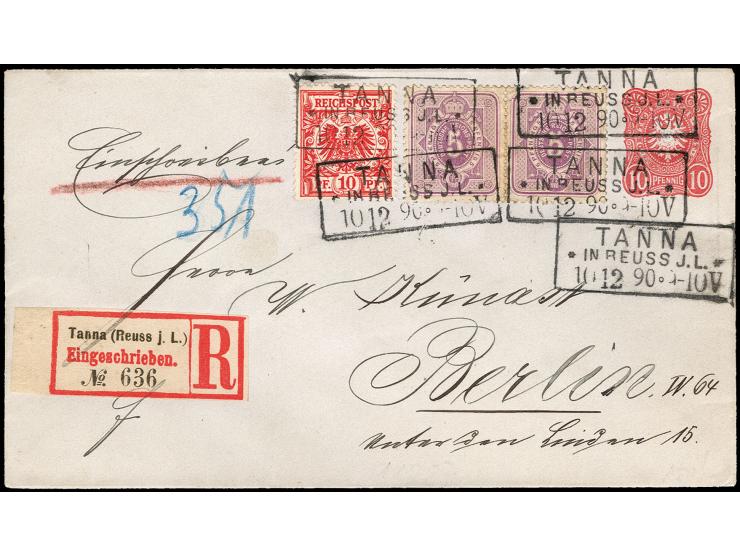 TANNA
* IN REUSS J.L. *
10 12 90 9-10V
TANNA
* IN REUSS J.L. *
REICHSPOST
PF 10 PF
5
5
10 PFENNIG 10
Einschreiben
TANNA
* IN REUSS J.L. *
10 12 90 9-10V
TANNA
* IN REUSS J.L. *
10 12 90 9-10V
351
TANNA
* IN REUSS J.L. *
10 12 90 9-10V
Herrn
W. Künast
Tanna (Reuss j. L.)
Eingeschrieben.
№ 636
R
Berlin. W. 64
Unter den Linden 15.